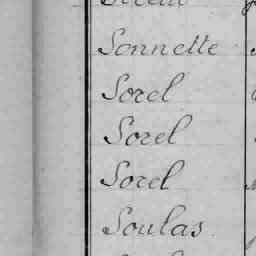 Sonnette
Sorel
Sorel
Sorel
Soulas